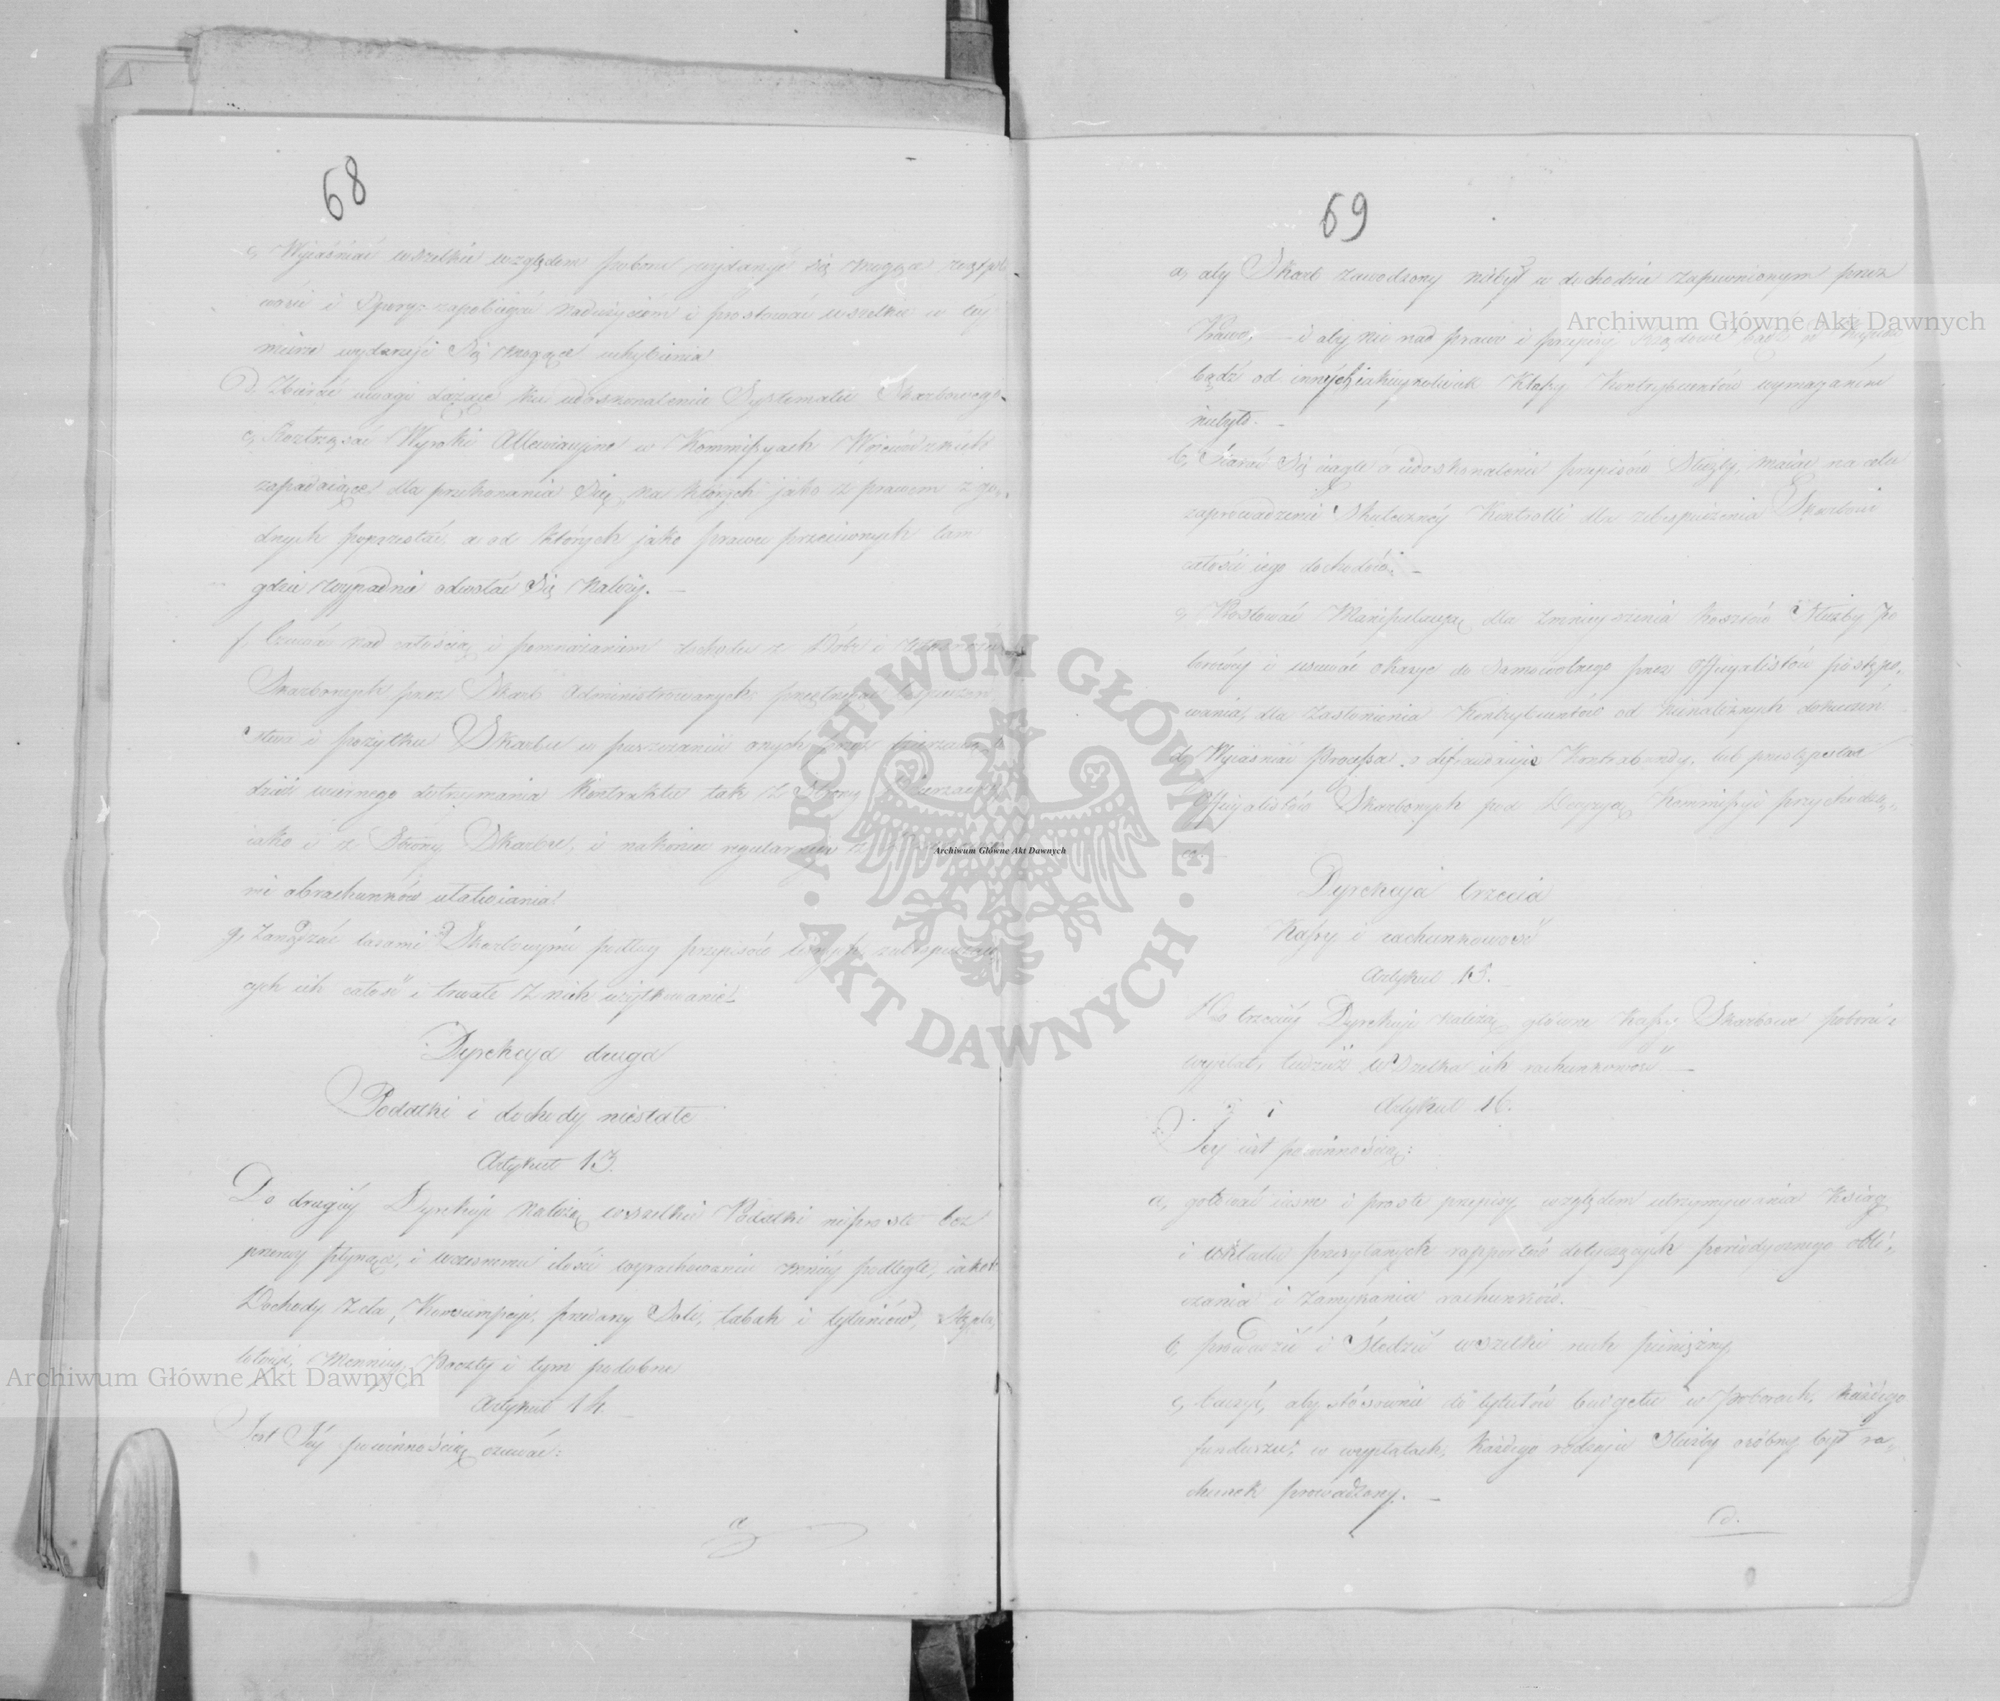 68
c, Wyiaśniać wszelkie względem poboru wydarzyć się mogące wątpli
wości i Spory; zapobiegać nadużyciom i prostować wszelkie w tey
mierze wydarzyć Się mogące uchybienia
d, Zbierać uwagi dążące ku udoskonaleniu Systematu Skarbowego.
e, Roztrząsać Wyroki Allewiacyjne w Kommissyach Wojewódzkich
zapadaiące dla przekonania Się, na których jako z prawem zgo-
dnych poprzestać, a od których jako prawu przeciwnych tam
gdzie wypadnie odwołać Się należy. —
f, Czuwać nad całością i pomnażaniem dochodu z Dóbr i
Skarbowych przez Skarb Administrowanych, przestrzegać bezpieczeń
stwa i pożytku Skarbu w puszczaniu onych
dzież wiernego dotrzymania Kontraktu tak z Strony
iako i z Strony Skarbu, i nakoniec regularnego z
mi obrachunków ułatwiania
g, Zarządzać lasami Skarbowymi podług przepisów leśnych zabezpieczaią
cych ich całość i trwałe z nich użytkowanie.
Dyrekcya druga
Podatki i dochody niestałe
Artykuł 13.
Do drugiéy Dyrekcyi należą wszelkie Podatki nieproste bez
przerwy płynące, i wczesnemu ilości wyrachowaniu mniéy podległe, iakoto
Dochody z Cła, Konsumpcyi, przedaży Soli, tabak i tytuniów, Stępla,
loteryi, Mennicy, Poczty i tym podobne
Artykuł 14. —
Jest Jéy powinnością czuwać:
a
69
a, aby Skarb zawodzony niebył w dochodzie zapewnionym przez
Prawo, — i aby nic nad prawo i przepisy Rządowe bądź od
bądź od innych iakieykolwiek Klassy Kontrybuentów wymaganem
niebyło. —
b, Starać Się ciągle o udoskonalenie przepisów Służby, maiąc na celu
zaprowadzenie Skuteczney Kontrolli dla zabespieczenia Skarbowi
całości iego dochodów; —
c, Prostować Manipulacyą dla zmnieyszenia kosztów Służby Po
borowéy i usuwać okazye do samowolnego przez Officyalistów postępo-
wania, dla zasłonienia Kontrybuentów od nienależnych dokuczeń
d, Wyiaśniać Processa o defraudacyie Kontrabandy, lub przestępstwa
Officyalistów Skarbowych pod Decyzyą Kommissyi przychodzą-
ce. —
Dyrekcyia trzecia
Kassy i rachunkowość
Artykuł 15.
Do trzeciéy Dyrekcyi należą główne Kassy Skarbowe poboru i
wypłat, tudzież wszelka ich rachunkowość —
Artykuł 16.
Jey iest powinnością:
a, gotować iasne i proste przepisy, względem utrzymywania Ksiąg
i układu przesyłanych rapportów dotyczących peryodycznego obli-
czania i zamykania rachunków.
b, prowadzić i Śledzić wszelki ruch pieniężny,
c, baczyć, aby stosownie do tytułów budżetu w Poborach, każdego
funduszu; w wypłatach, każdego rodzaju Służby osóbny był ra-
chunek prowadzony. —
d.
Archiwum Główne Akt Dawnych
Archiwum Główne Akt Dawnych
Archiwum Główne Akt Dawnych
ARCHIWUM GŁÓWNE • AKT DAWNYCH •